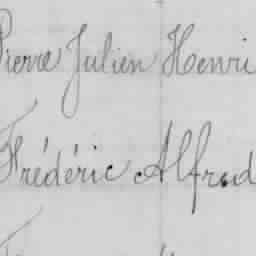 Pierre Julien Henri
Frédéric Alfred